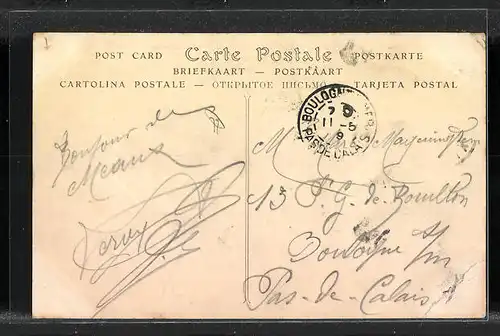 POST CARD Carte Postale POSTKARTE
BRIEFKAART — POSTKAART
CARTOLINA POSTALE — ОТКРЫТОЕ ПИСЬМО — TARJETA POSTAL
BOULOGNE
7
11-5
PAS DE CALAIS
Bonjour de
Meaux
M
13 P. G. de Bouillon
Boulogne s/m
Pas-de-Calais